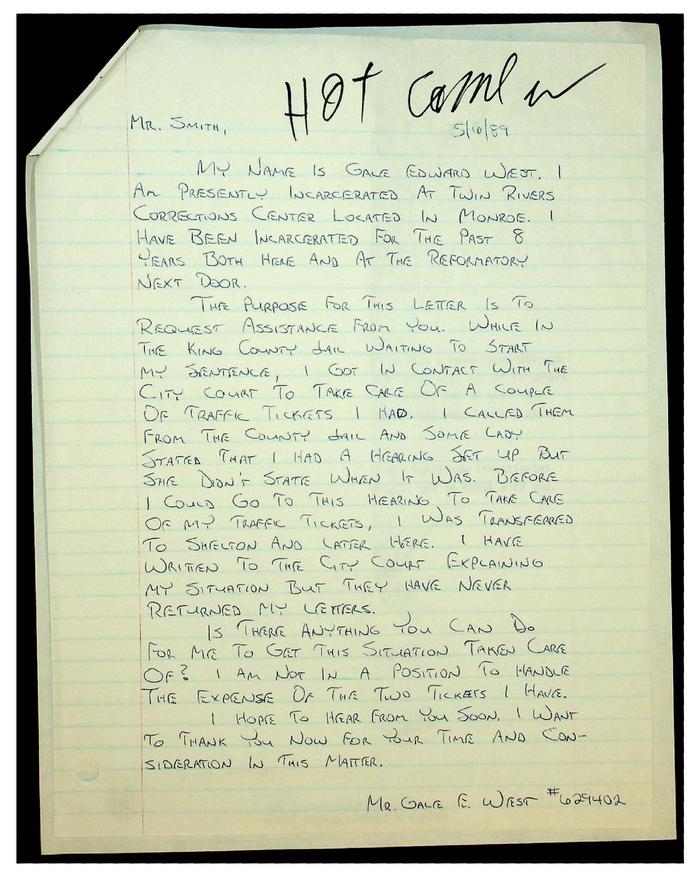 HOT
MR. SMITH,
5/10/89
MY NAME IS GALE EDWARD WEST. I
AM PRESENTLY INCARCERATED AT TWIN RIVERS
CORRECTIONS CENTER LOCATED IN MONROE. I
HAVE BEEN INCARCERATED FOR THE PAST 8
YEARS BOTH HERE AND AT THE REFORMATORY
NEXT DOOR.
THE PURPOSE FOR THIS LETTER IS TO
REQUEST ASSISTANCE FROM YOU. WHILE IN
THE KING COUNTY JAIL WAITING TO START
MY SENTENCE, I GOT IN CONTACT WITH THE
CITY COURT TO TAKE CARE OF A COUPLE
OF TRAFFIC TICKETS I HAD. I CALLED THEM
FROM THE COUNTY JAIL AND SOME LADY
STATED THAT I HAD A HEARING SET UP BUT
SHE DIDN'T STATE WHEN IT WAS. BEFORE
I COULD GO TO THIS HEARING TO TAKE CARE
OF MY TRAFFIC TICKETS, I WAS TRANSFERRED
TO SHELTON AND LATER HERE. I HAVE
WRITTEN TO THE CITY COURT EXPLAINING
MY SITUATION BUT THEY HAVE NEVER
RETURNED MY LETTERS.
IS THERE ANYTHING YOU CAN DO
FOR ME TO GET THIS SITUATION TAKEN CARE
OF? I AM NOT IN A POSITION TO HANDLE
THE EXPENSE OF THE TWO TICKETS I HAVE.
I HOPE TO HEAR FROM YOU SOON. I WANT
TO THANK YOU NOW FOR YOUR TIME AND CON-
SIDERATION IN THIS MATTER.
MR. GALE E. WEST #629402